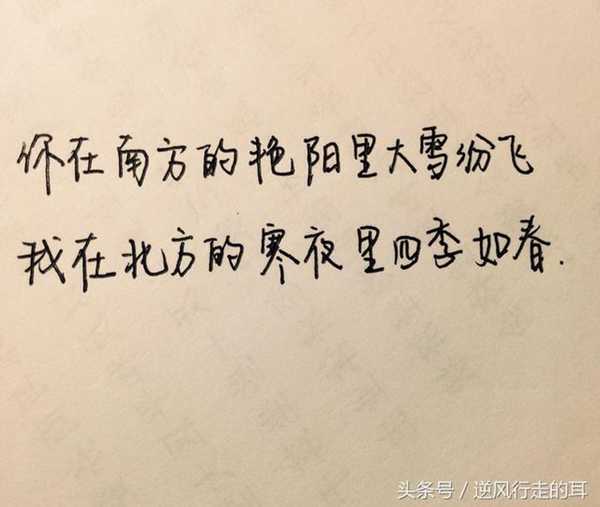 你在南方的艳阳里大雪纷飞
我在北方的寒夜里四季如春.
头条号/逆风行走的耳